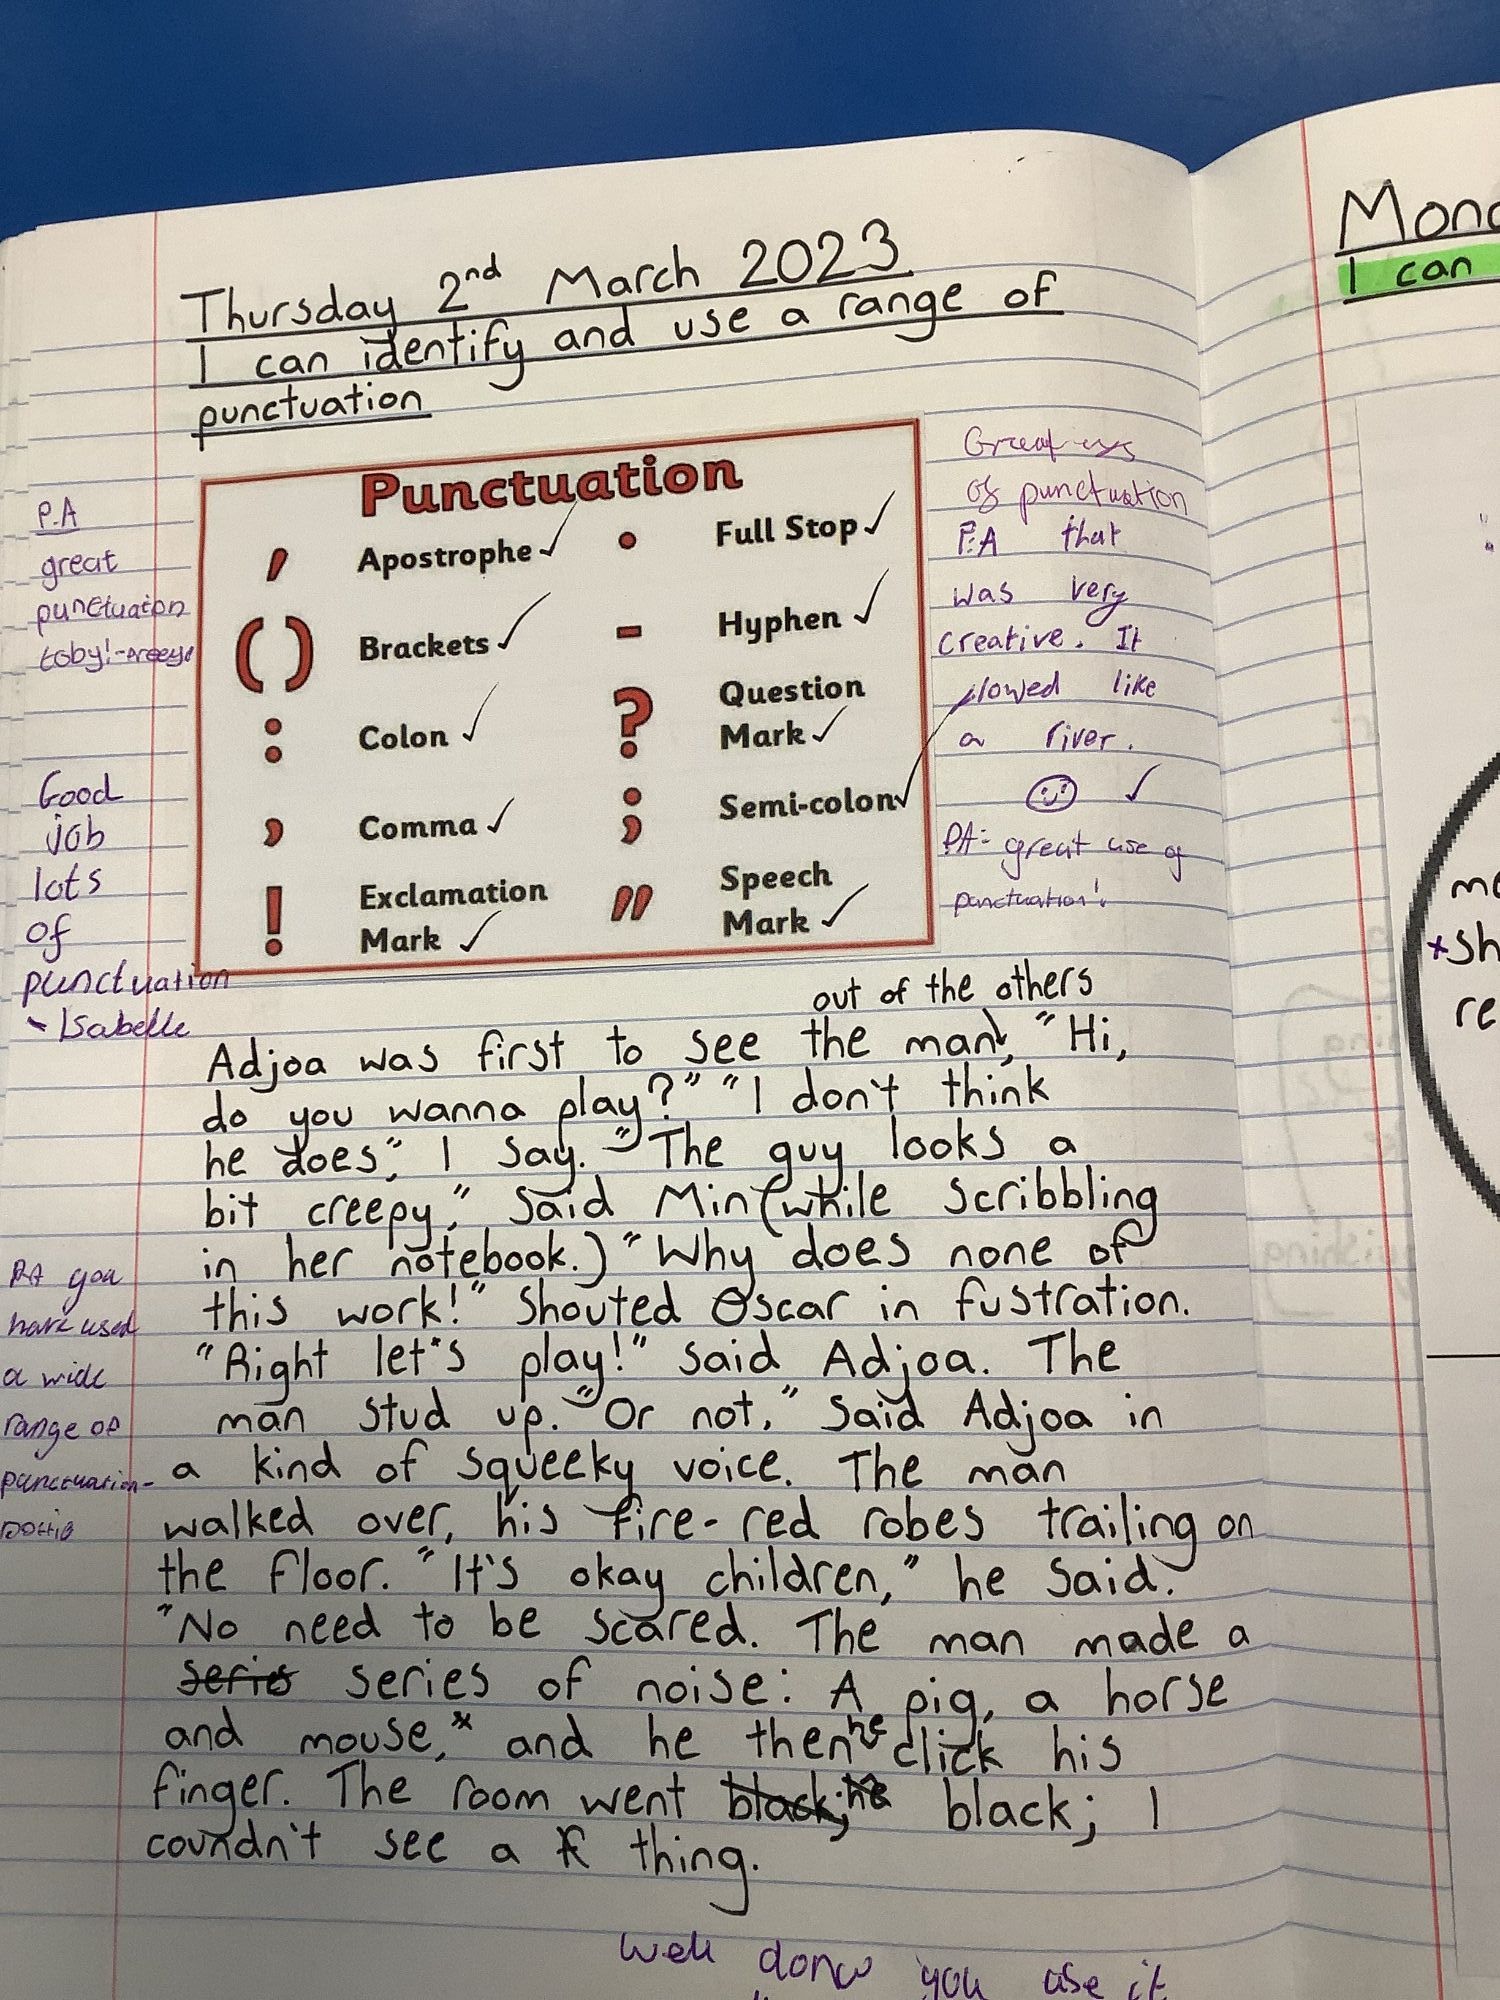 Thursday 2nd March 2023
I can identify and use a range of
punctuation
Punctuation
, Apostrophe ✓
( ) Brackets ✓
: Colon ✓
, Comma ✓
! Exclamation
Mark ✓
. Full Stop ✓
- Hyphen ✓
? Question
Mark ✓
; Semi-colon ✓
" Speech
Mark ✓
P.A
great
punctuation
toby!
Good
job
lots
of
punctuation
- Isabelle
Great use
of punctuation
P.A that
was very
creative. It
flowed like
a river.
✓
PA: great use of
punctuation!
out of the others
Adjoa was first to see the man, "Hi,
do you wanna play?" "I don't think
he does," I say. "The guy looks a
bit creepy," said Min (while scribbling
in her notebook.) "Why does none of
this work!" Shouted Oscar in fustration.
"Right let's play!" said Adjoa. The
man stud up. "Or not," said Adjoa in
a kind of squeeky voice. The man
walked over, his fire-red robes trailing on
the floor. "It's okay children," he said.
"No need to be scared. The man made a
series series of noise: A pig, a horse
and mouse,* and he then he click his
finger. The room went black; he black; I
coundn't see a thing.
PA you
have used
a wide
range of
punctuation-
well done you use it
Mond
I can
me
+sh
re